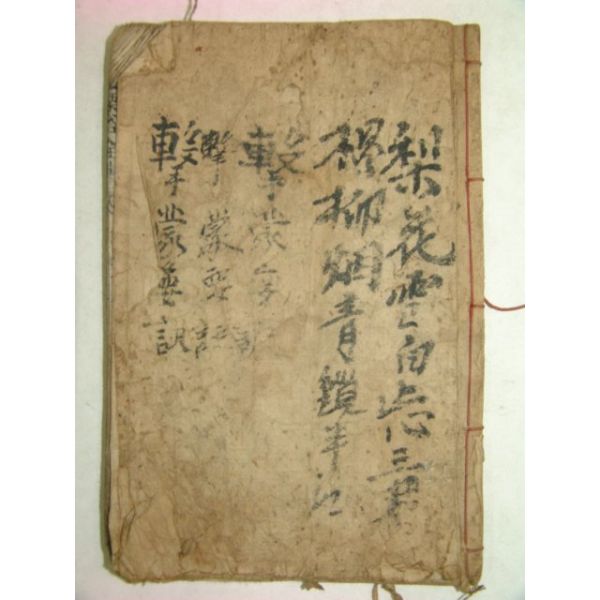 梨花雪白三
楊柳烟青鎖半江
擊蒙要訣
擊蒙要訣
擊蒙要訣